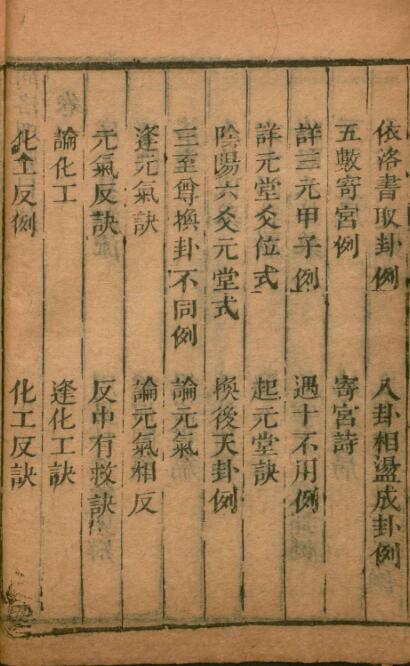 依洛書取卦例　八卦相盪成卦例
五數寄宮例　寄宮詩
詳三元甲子例　遇十不用例
詳元堂爻位式　起元堂訣
陰陽六爻元堂式　換後天卦例
三至尊換卦不同例　論元氣
逢元氣訣　論元氣相反
元氣反訣　反中有救訣
論化工　逢化工訣
化工反例　化工反訣